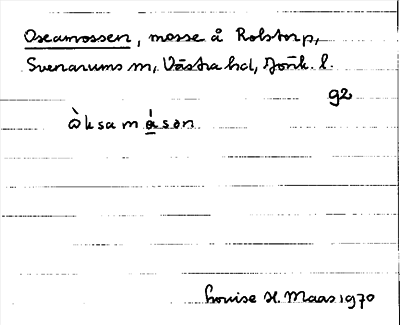 Oxamossen, mosse å Rolstorp,
Svenarums sn, Västra hd, Jönk. l.
92
ò̀ksamå̀sən
Louise H. Maas 1970